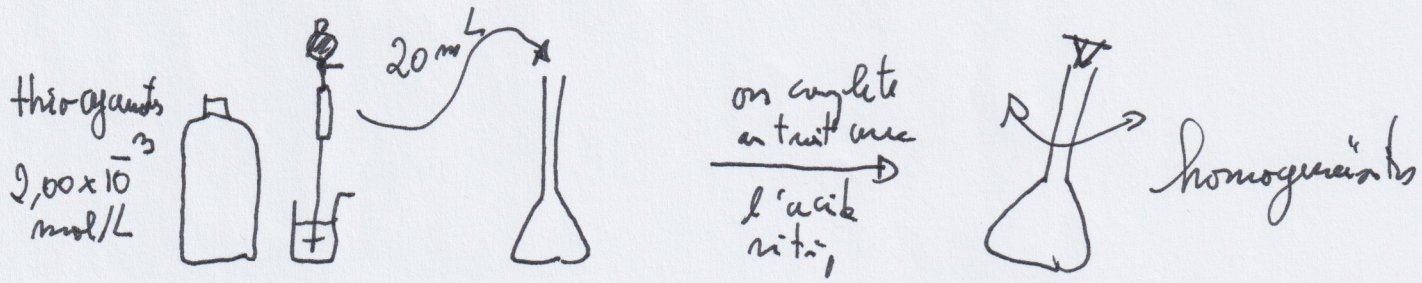 thiocyanates
2,00 x 10⁻³
mol/L
20 mL
on complète
au trait avec
l'acide
homogénéisation